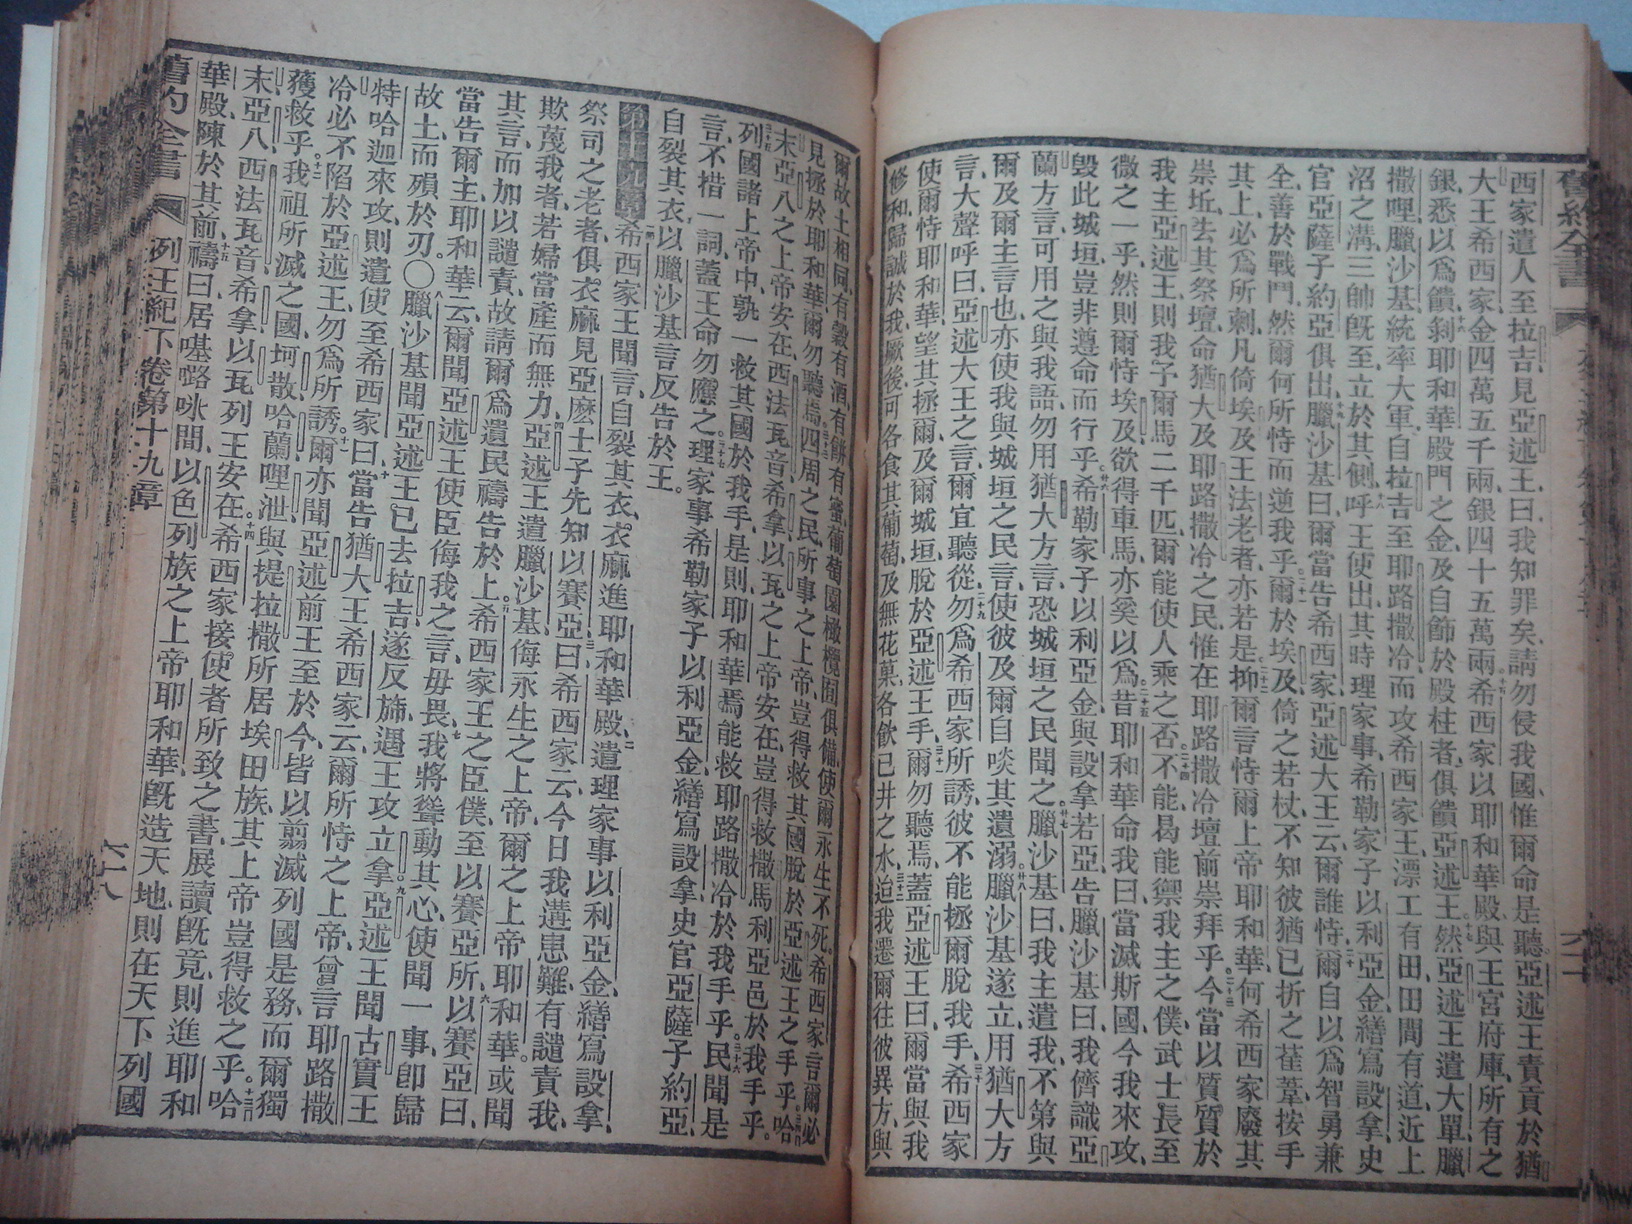 西家遣人至拉吉見亞述王曰我知罪矣請勿侵我國惟爾命是聽亞述王責貢於猶
大王希西家金四萬五千兩銀四十五萬兩希西家以耶和華殿與王宮府庫所有之
銀悉以爲饋剝耶和華殿門之金及自飾於殿柱者俱饋亞述王然亞述王遣大單臘
撒哩臘沙基統率大軍自拉吉至耶路撒冷而攻希西家王漂工有田田間有道近上
沼之溝三帥旣至立於其側呼王使出其時理家事希勒家子以利亞金繕寫設拿史
官亞薩子約亞俱出臘沙基曰爾當告希西家亞述大王云爾誰恃爾自以爲智勇兼
全善於戰鬥然爾何所恃而逆我乎爾於埃及倚之若杖不知彼猶已折之萑葦按手
其上必爲所刺凡倚埃及王法老者亦若是抑爾言恃爾上帝耶和華何希西家廢其
崇坵去其祭壇命猶大及耶路撒冷之民惟在耶路撒冷壇前崇拜乎今當以質質於
我主亞述王則我予爾馬二千匹爾能使人乘之否不能曷能禦我主之僕武士長至
微之一乎然則爾恃埃及欲得車馬亦奚以爲昔耶和華命我曰當滅斯國今我來攻
毀此城垣豈非遵命而行乎希勒家子以利亞金與設拿若亞告臘沙基曰我儕識亞
蘭方言可用之與我語勿用猶大方言恐城垣之民聞之臘沙基曰我主遣我不第與
爾及爾主言也亦使我與城垣之民言使彼及爾自啖其遺溺臘沙基遂立用猶大方
言大聲呼曰亞述大王之言爾宜聽從勿爲希西家所誘彼不能拯爾脫我手希西家
使爾恃耶和華望其拯爾及爾城垣脫於亞述王手爾勿聽焉蓋亞述王曰爾當與我
修和歸誠於我厥後可各食其葡萄及無花菓各飲己井之水迨我遷爾往彼異方與
爾故土相同有穀有酒有餅有蜜葡萄園橄欖囿俱備使爾永生不死希西家言爾必
見拯於耶和華爾勿聽焉四周之民所事之上帝豈得救其國脫於亞述王之手乎哈
末亞八之上帝安在西法瓦音希拿以瓦之上帝安在豈得救撒馬利亞邑於我手乎
列國諸上帝中孰一救其國於我手是則耶和華焉能救耶路撒冷於我手乎民聞是
言不措一詞蓋王命勿應之理家事希勒家子以利亞金繕寫設拿史官亞薩子約亞
自裂其衣以臘沙基言反告於王
第十九章希西家王聞言自裂其衣衣麻進耶和華殿遣理家事以利亞金繕寫設拿
祭司之老者俱衣麻見亞麽士子先知以賽亞曰希西家云今日我遘患難有譴責我
欺蔑我者若婦當產而無力亞述王遣臘沙基侮永生之上帝爾之上帝耶和華或聞
其言而加以譴責故請爾爲遺民禱告於上希西家王之臣僕至以賽亞所以賽亞曰
當告爾主耶和華云爾聞亞述王使臣侮我之言毋畏我將聳動其心使聞一事卽歸
故土而殞於刃〇臘沙基聞亞述王已去拉吉遂反斾遇王攻立拿亞述王聞古實王
特哈迦來攻則遣使至希西家曰當告猶大王希西家云爾所恃之上帝曾言耶路撒
冷必不陷於亞述王勿爲所誘爾亦聞亞述前王至於今皆以翦滅列國是務而爾獨
獲救乎我祖所滅之國坷散哈蘭哩泄與提拉撒所居埃田族其上帝豈得救之乎哈
末亞八西法瓦音希拿以瓦列王安在希西家接使者所致之書展讀旣竟則進耶和
華殿陳於其前禱曰居𠼻𡀔㕭間以色列族之上帝耶和華旣造天地則在天下列國
舊約全書 列王紀下卷第十九章 六十八